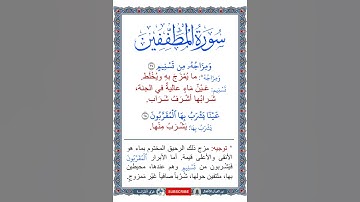 سُورَةُ الْمُطَفِّفِينَ
وَمِزَاجُهُۥ مِن تَسْنِيمٍ ٢٧
وَمِزَاجُهُۥ: ما يُمْزَجُ بِهِ ويُخْلَطُ.
تَسْنِيمٍ: عَيْنُ مَاءٍ عاليةٌ في الجنّة،
شَرابُها أَشْرَفُ شَرابٍ.
عَيْنًا يَشْرَبُ بِهَا ٱلْمُقَرَّبُونَ ٢٨
يَشْرَبُ بِهَا: يَشْرَبُ مِنْها.
* توجيه: مزج ذلك الرحيق المختوم بماء هو
الأنقى والأعلى قيمة. أما الأبرار ٱلْمُقَرَّبُونَ
فيشربون من تَسْنِيمٍ وهم عندها، محيطين
بها، ملتفين حولها، شُرباً صافياً غير ممزوج.
SUBSCRIBE